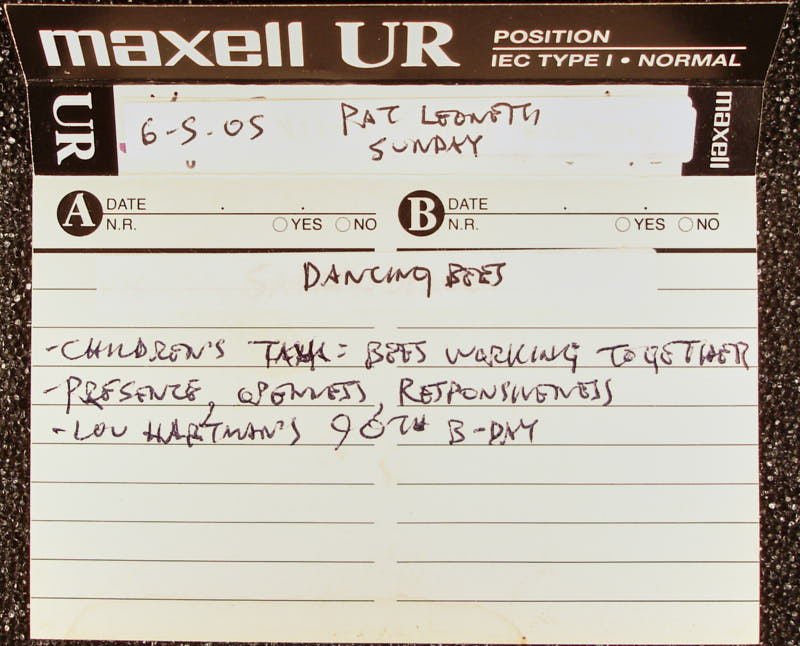 maxell UR POSITION
IEC TYPE I • NORMAL
UR
6-5-05 PAT LEONETTI
SUNDAY
maxell
A DATE . .
N.R. YES NO
B DATE . .
N.R. YES NO
DANCING BEES
-CHILDREN'S TALK: BEES WORKING TOGETHER
-PRESENCE, OPENNESS, RESPONSIVENESS
-LOU HARTMAN'S 90TH B-DAY